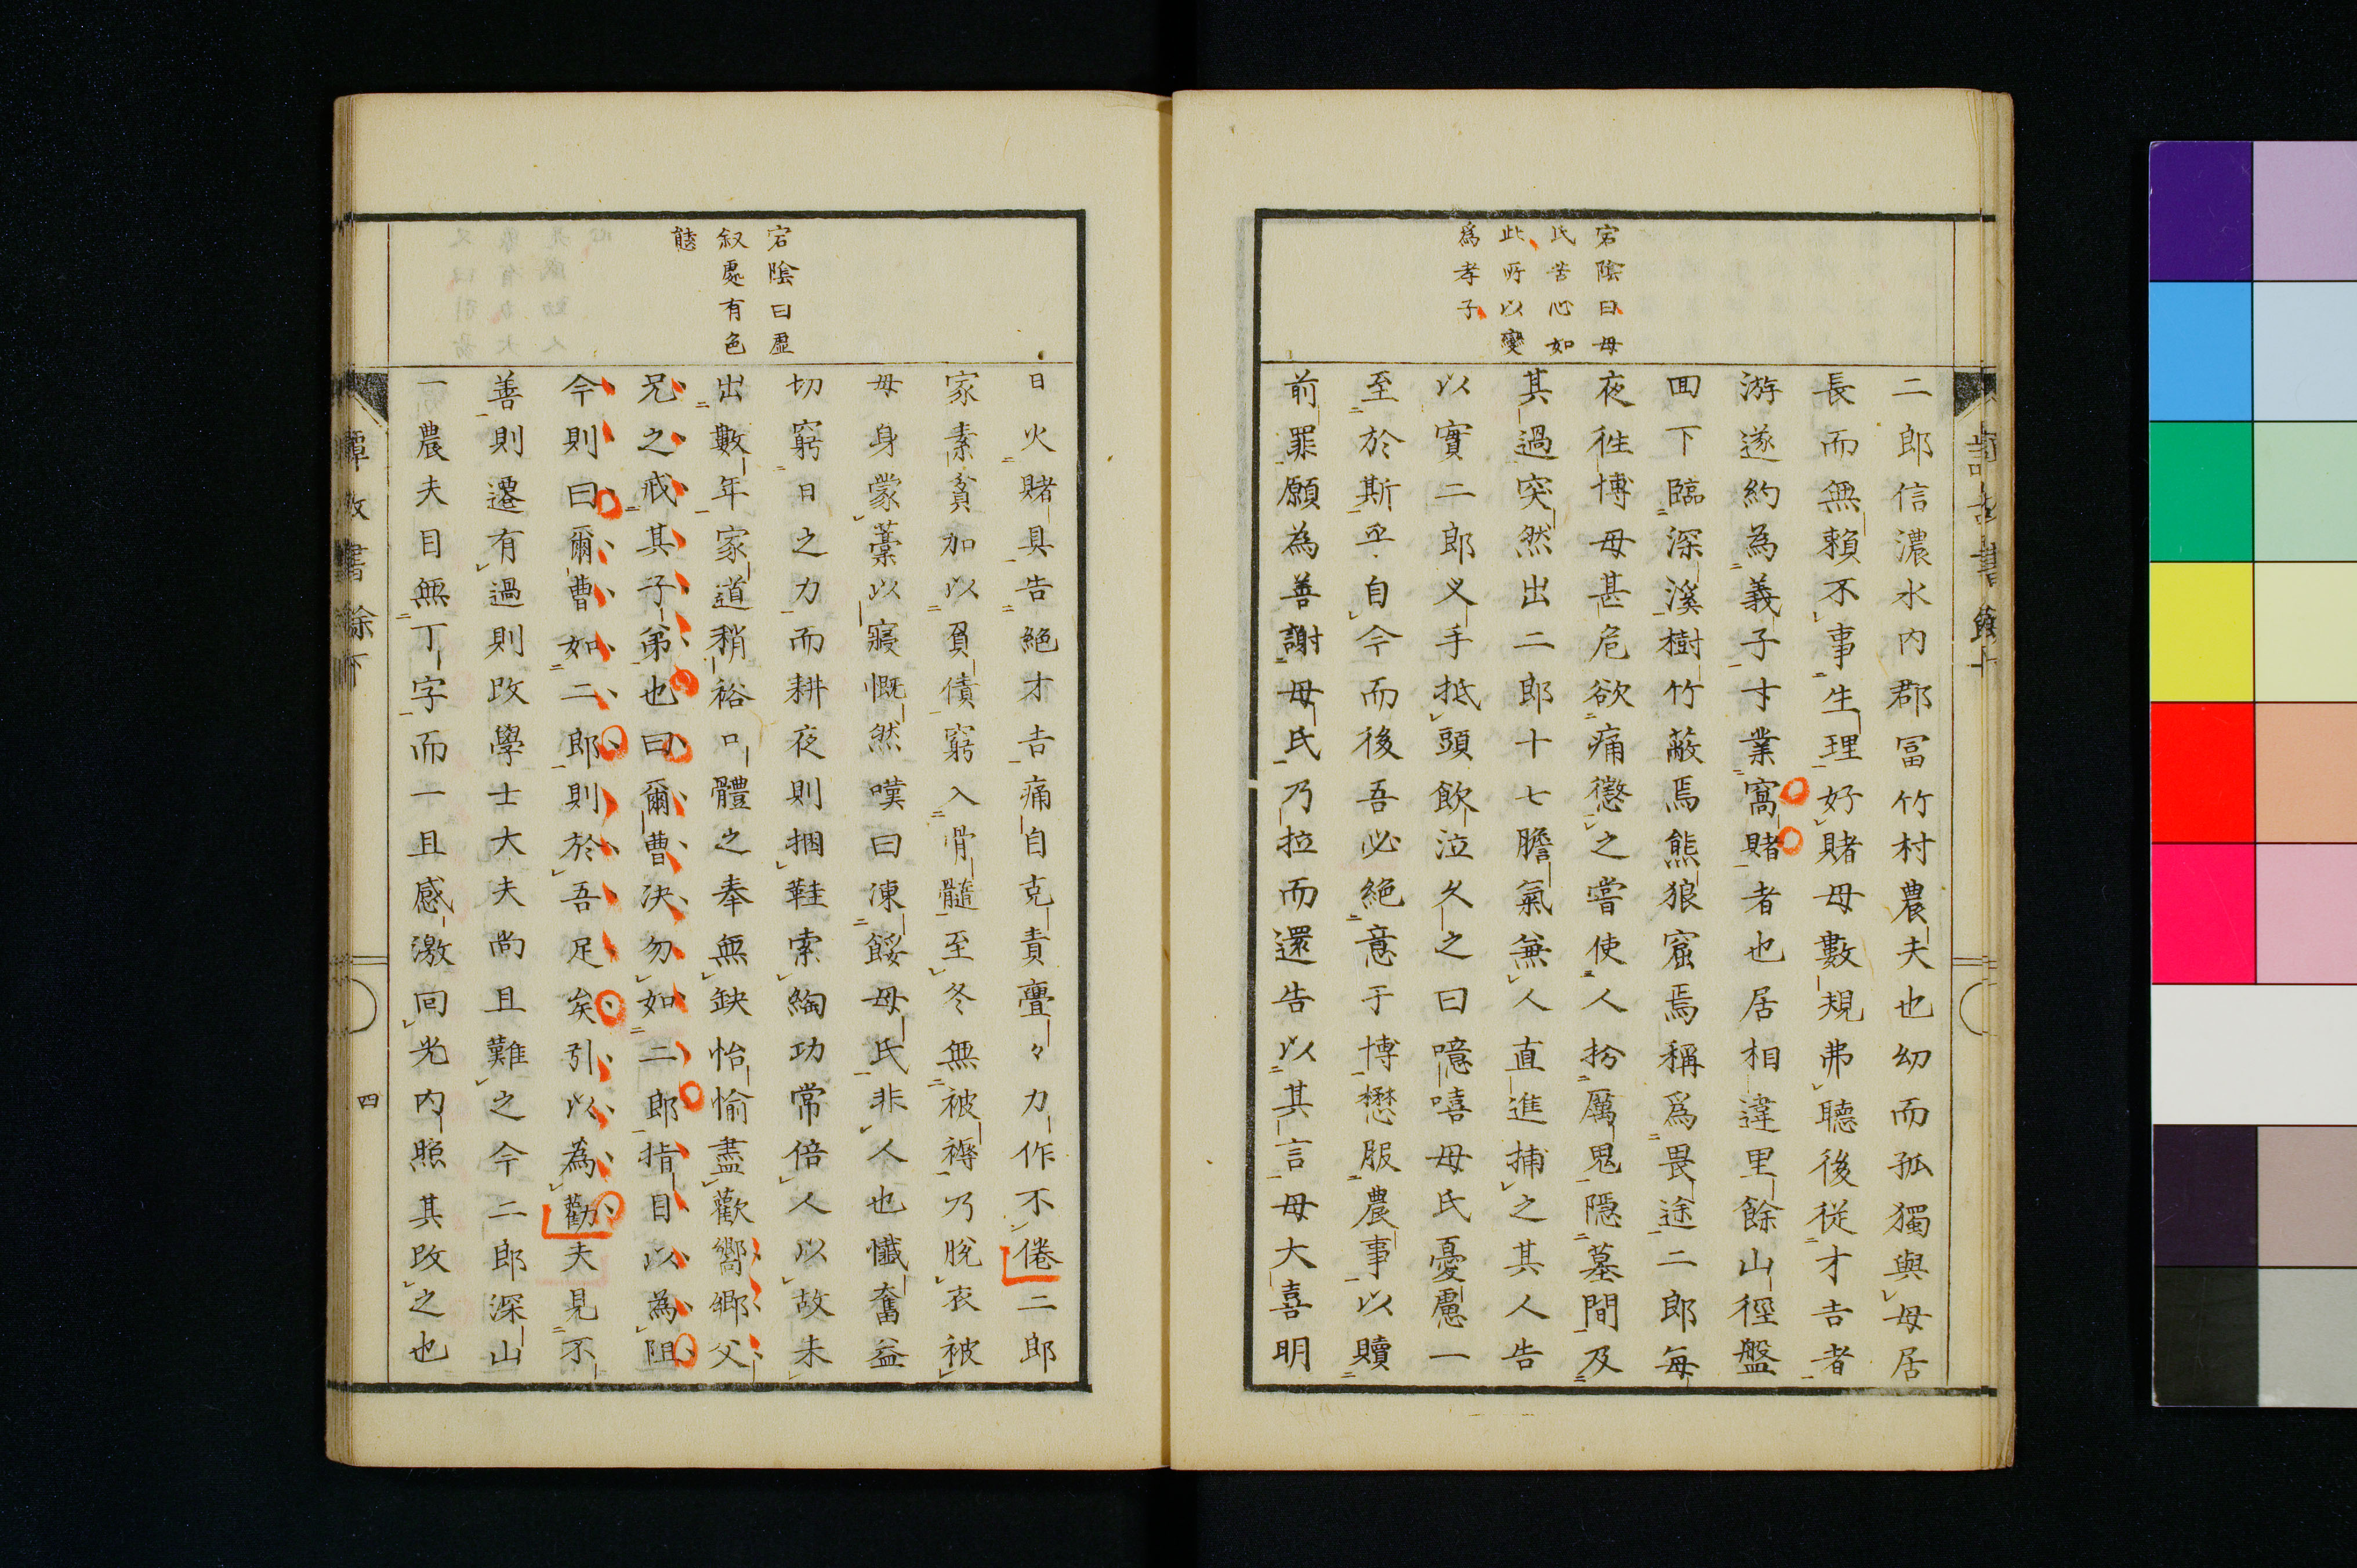 宕陰曰母
氏苦心如
此所以變
爲孝子
二郎信濃水内郡冨竹村農夫也幼而孤獨與母居
長而無頼不事生理好賭母數規弗聽後従才吉者
游遂約為義子才業窩賭者也居相違里餘山徑盤
回下臨深溪樹竹蔽焉熊狼窟焉稱爲畏途二郎每
夜徃博母甚危欲痛懲之嘗使人扮厲鬼隠墓間及
其過突然出二郎十七膽氣兼人直進捕之其人告
以實二郎义手抵頭飲泣久之曰噫嘻母氏憂慮一
至於斯乎自今而後吾必絶意于博懋服農事以贖
前罪願為善謝母氏乃拉而還告以其言母大喜明
宕陰曰虚
叙處有色
態
日火賭具告絶才吉痛自克責亹々力作不倦二郎
家素貧加以負債窮入骨髓至冬無被褥乃脱衣被
母身蒙藁以寢慨然嘆曰凍餒母氏非人也懺奮益
切窮日之力而耕夜則捆鞋索綯功常倍人以故未
出數年家道稍裕口體之奉無缺怡愉盡歡嚮鄉父
兄之戒其子弟也曰爾曹決勿如二郎指目以為阻
今則曰爾曹如二郎則於吾足矣引以為勸夫見不
善則遷有過則改學士大夫尚且難之今二郎深山
一農夫目無丁字而一旦感激回光内照其改之也
四